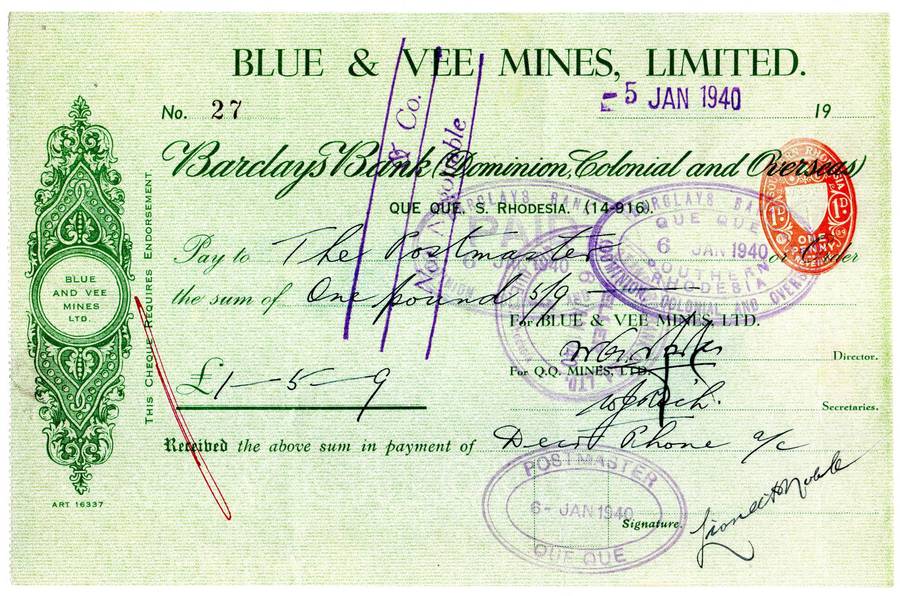 BLUE & VEE MINES, LIMITED.
No. 27
- 5 JAN 1940
19
& Co.
Not Negotiable
Barclays Bank (Dominion, Colonial and Overseas)
QUE QUE, S. RHODESIA. (14-916).
Pay to The Postmaster or Order
the sum of One pound 5/9
For BLUE & VEE MINES, LTD.
Director.
For Q.Q. MINES, LTD.
Secretaries.
£1-5-9
Received the above sum in payment of Decr Phone a/c
Signature.
BLUE
AND VEE
MINES
LTD.
ART 16337
THIS CHEQUE REQUIRES ENDORSEMENT
BARCLAYS BANK
QUE QUE
6 JAN 1940
SOUTHERN
RHODESIA
DOMINION, COLONIAL AND OVERSEAS
6 JAN 1940
1D 1D
ONE
PENNY
POSTMASTER
6 - JAN 1940
QUE QUE